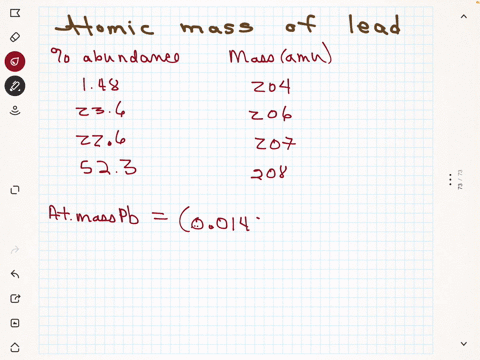 Atomic mass of lead
% abundance Mass (amu)
1.48 204
23.6 206
22.6 207
52.3 208
At. mass Pb = (0.014
73 / 75